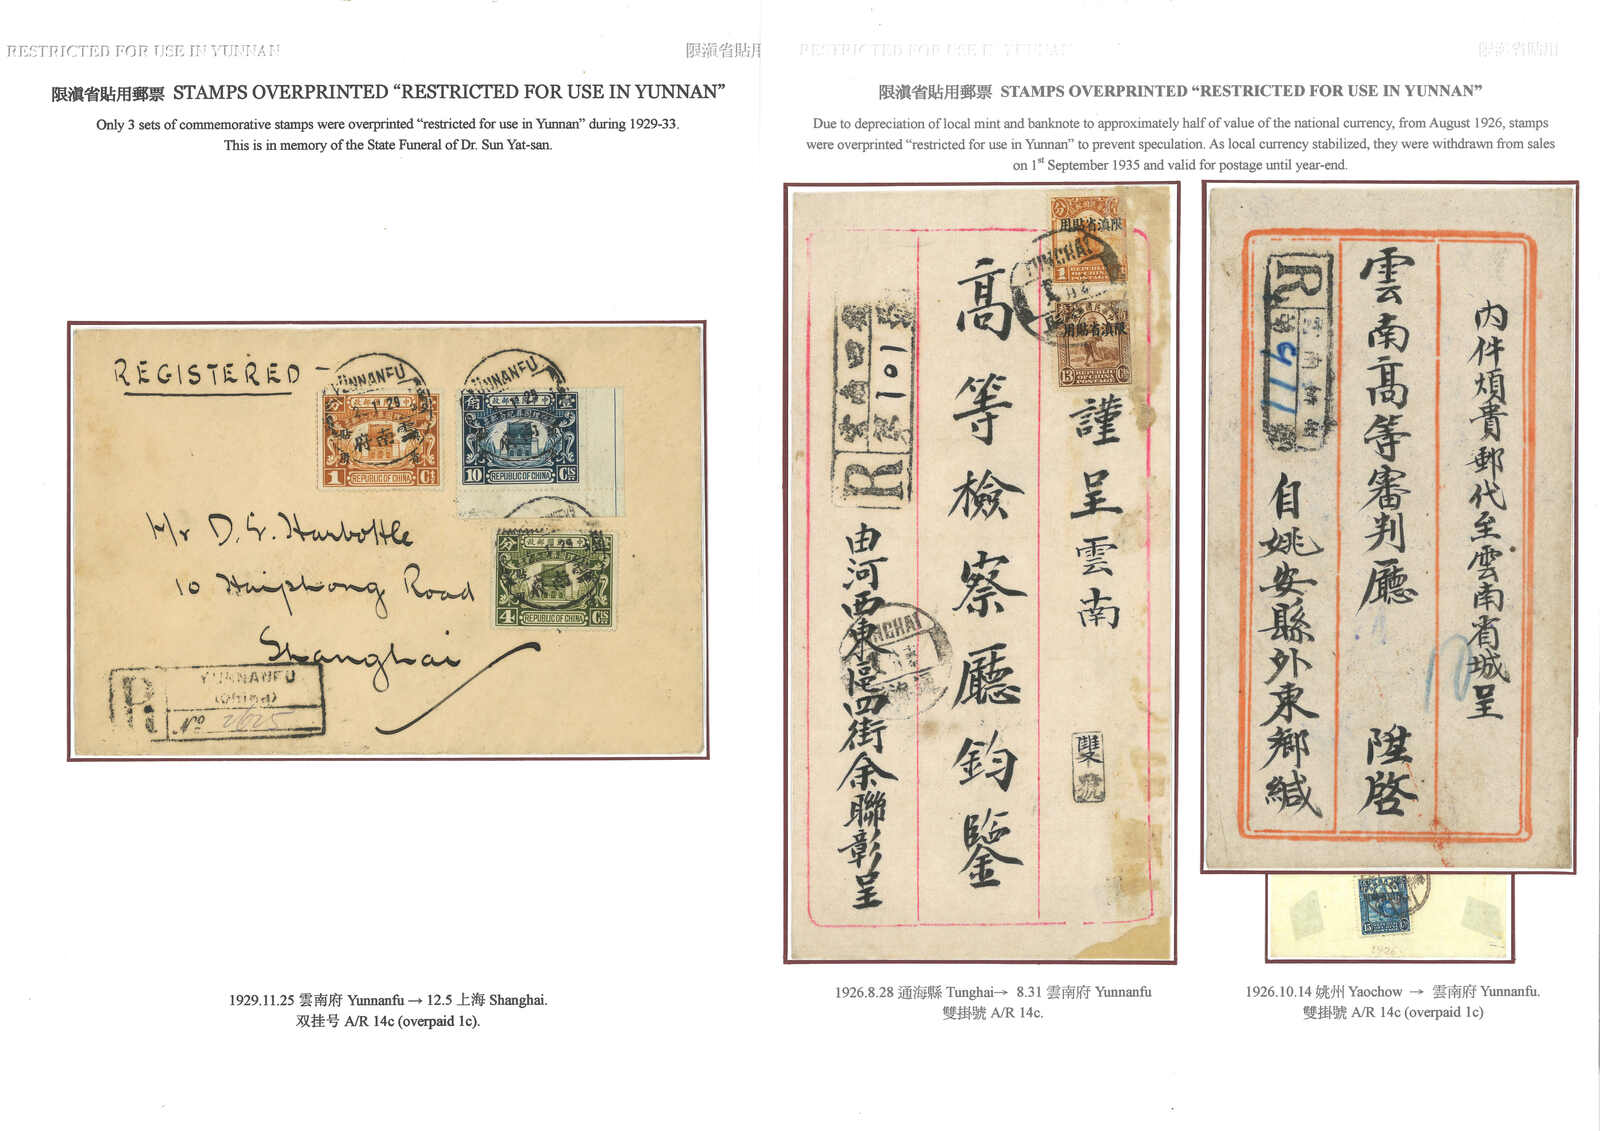 RESTRICTED FOR USE IN YUNNAN
限滇省貼用
限滇省貼用郵票 STAMPS OVERPRINTED “RESTRICTED FOR USE IN YUNNAN”
Only 3 sets of commemorative stamps were overprinted “restricted for use in Yunnan” during 1929-33.
This is in memory of the State Funeral of Dr. Sun Yat-san.
REGISTERED –
YUNNANFU
雲南府
1 REPUBLIC OF CHINA Ct
YUNNANFU
10 REPUBLIC OF CHINA Cts
4 REPUBLIC OF CHINA Cts
Mr D. S. Harbottle
10 Haiphong Road
Shanghai
R YUNNANFU
(China)
No
1929.11.25 雲南府 Yunnanfu → 12.5 上海 Shanghai.
双挂号 A/R 14c (overpaid 1c).
RESTRICTED FOR USE IN YUNNAN
限滇省貼用
限滇省貼用郵票 STAMPS OVERPRINTED “RESTRICTED FOR USE IN YUNNAN”
Due to depreciation of local mint and banknote to approximately half of value of the national currency, from August 1926, stamps
were overprinted “restricted for use in Yunnan” to prevent speculation. As local currency stabilized, they were withdrawn from sales
on 1st September 1935 and valid for postage until year-end.
限滇省貼用
1 REPUBLIC OF CHINA POSTAGE
TUNGHAI
限滇省貼用
13 REPUBLIC OF CHINA POSTAGE Cts
謹呈雲南
雙號
高等檢察廳鈞鑒
R 101
由河西東區四街余聯彰呈
1926.8.28 通海縣 Tunghai→ 8.31 雲南府 Yunnanfu
雙掛號 A/R 14c.
內件煩貴郵代至雲南省城呈
雲南高等審判廳 陞啓
R
自姚安縣外東鄉緘
15
1926
1926.10.14 姚州 Yaochow → 雲南府 Yunnanfu.
雙掛號 A/R 14c (overpaid 1c)